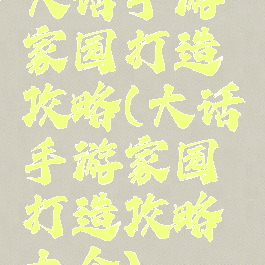 大话手游
家园打造
攻略(大话
手游家园
打造攻略
大全)